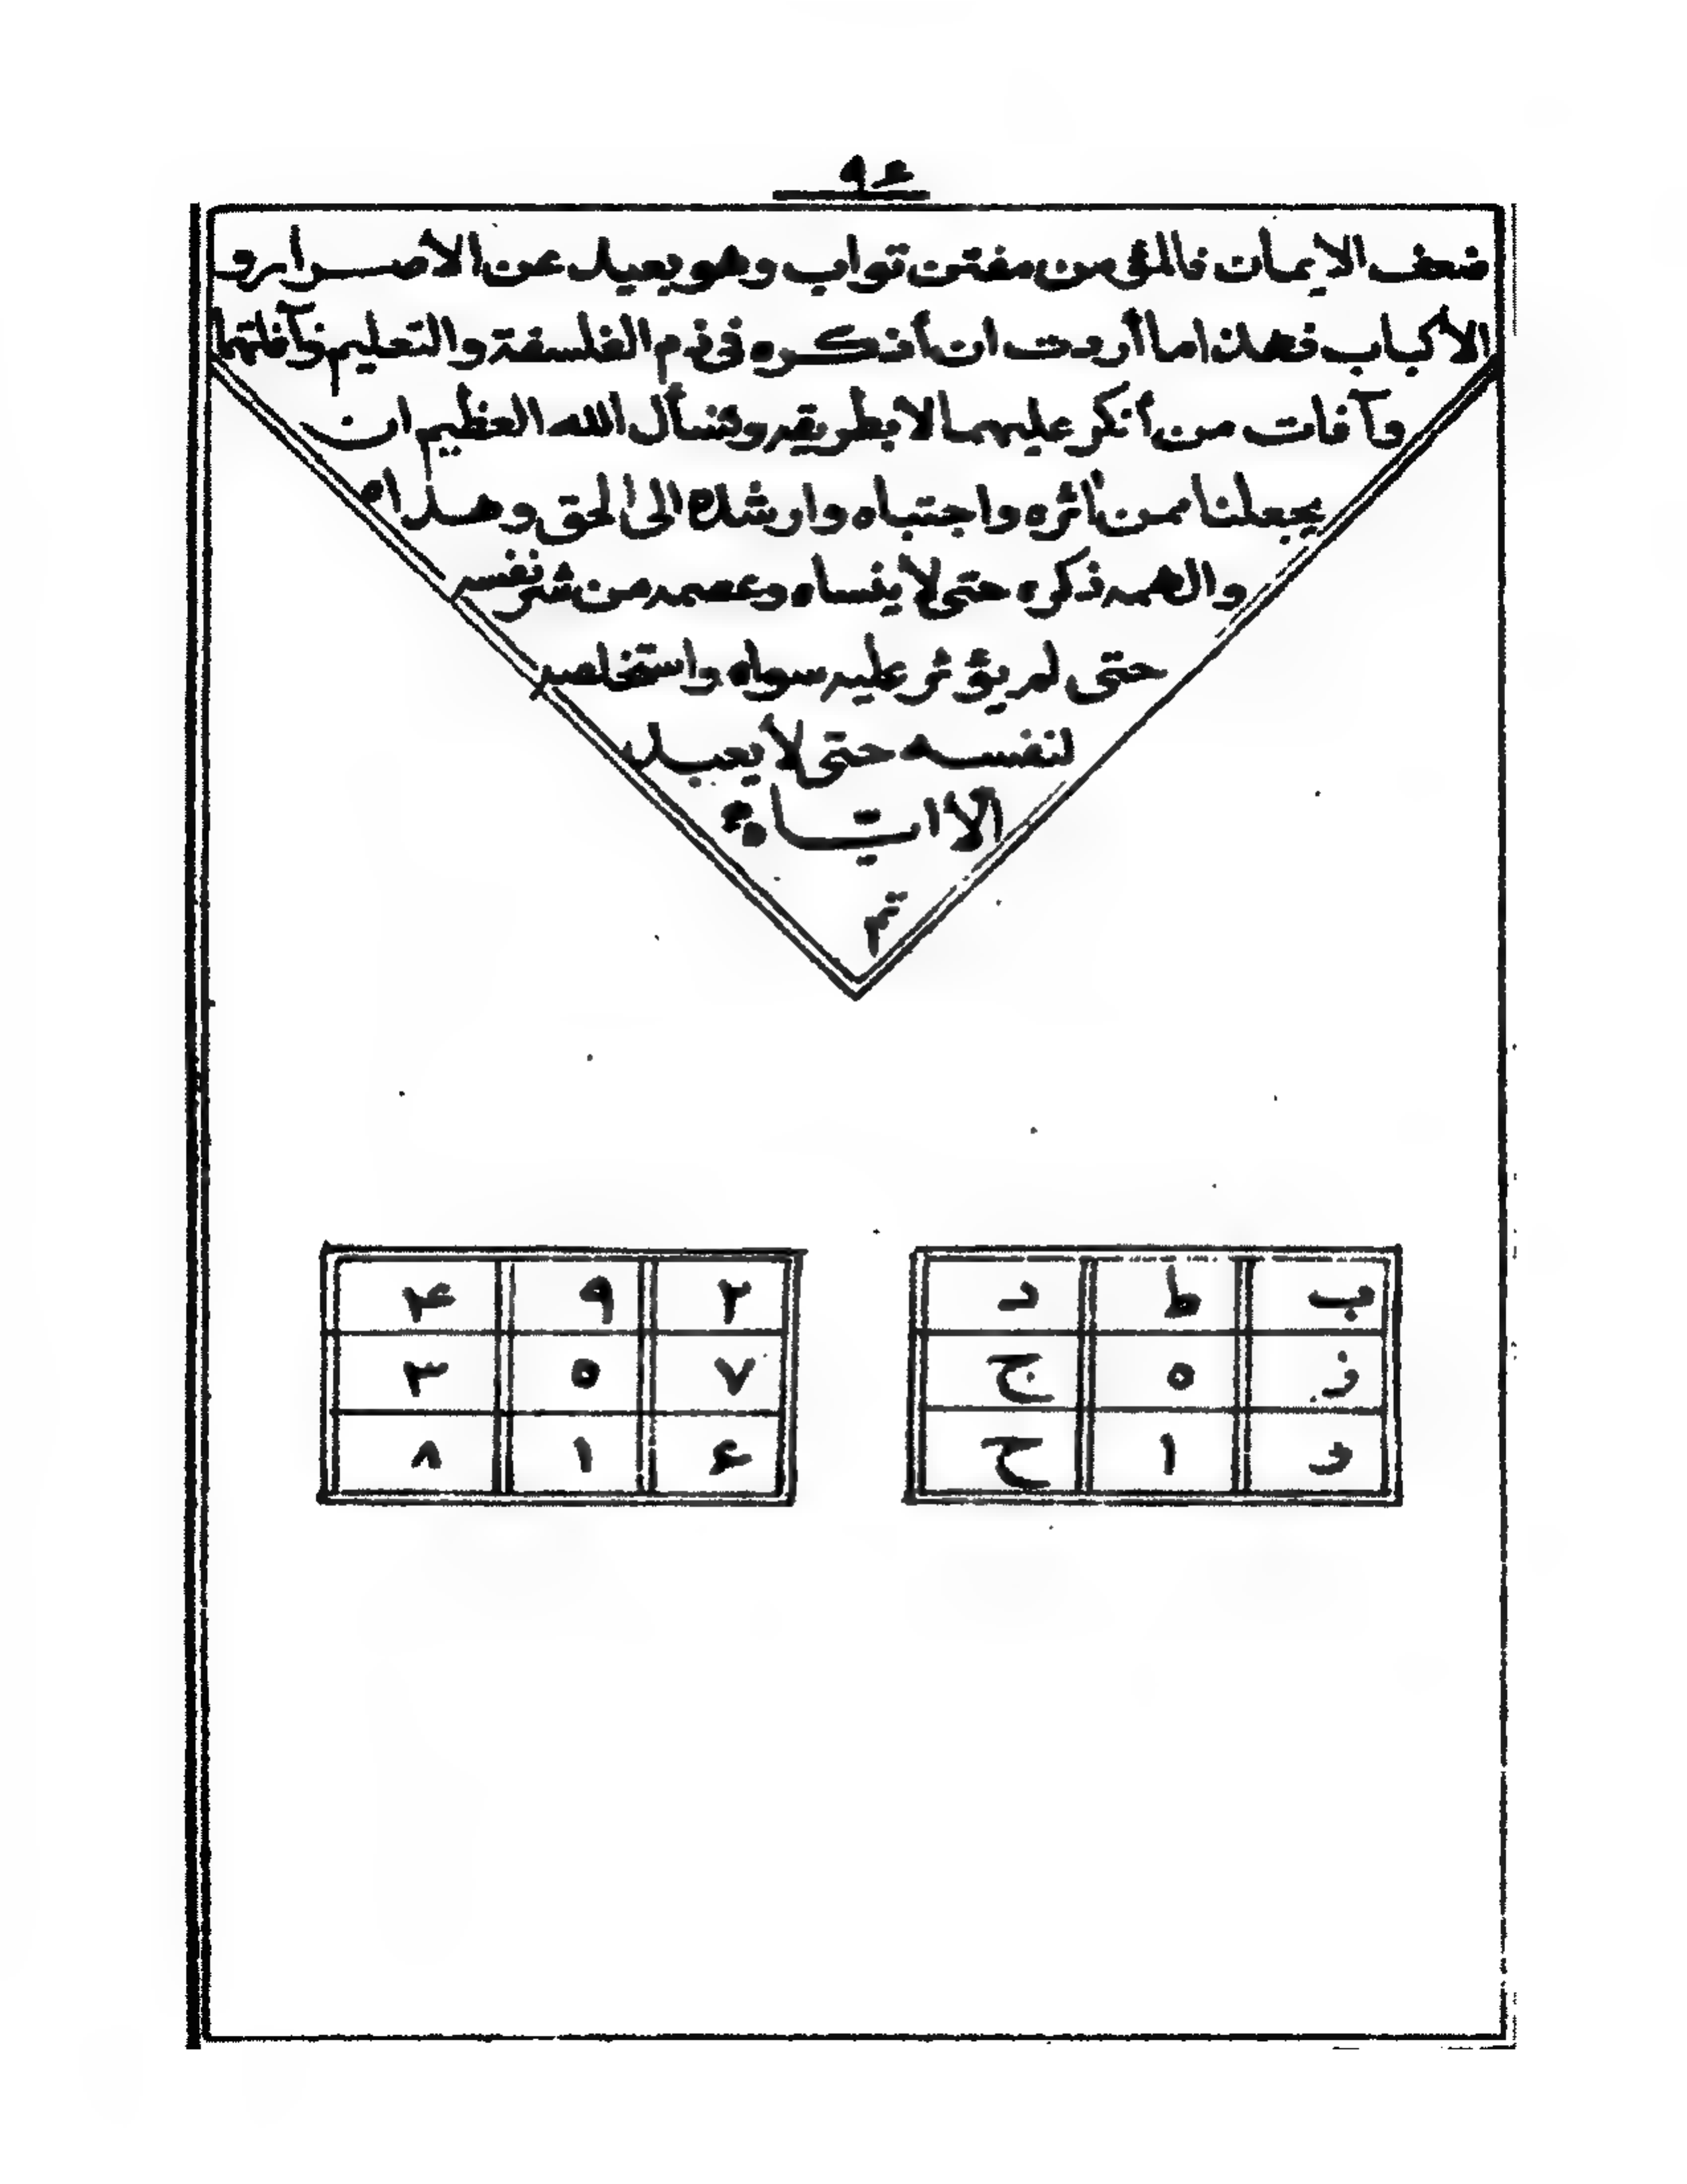 ۹۶
ضعف الايمان فالمؤمن مفتن تواب وهو بعيد عن الاصرار و
الاكباب فهذا ما أردت ان أذكره فى ذم الفلسفة والتعليم وآفاتها
وآفات من أنكر عليهما لا بطريقه ونسأل الله العظيم ان
يجعلنا ممن آثره واجتباه وارشده الى الحق وهداه
والهمه ذكره حتى لا ينساه وعصمه من شر نفسه
حتى لم يؤثر عليه سواه واستخلصه
لنفسه حتى لا يعبد
الا اياه
تم
ب ط د
ز ه ج
و ا ح
۲ ۹ ۴
۷ ۵ ۳
۶ ۱ ۸